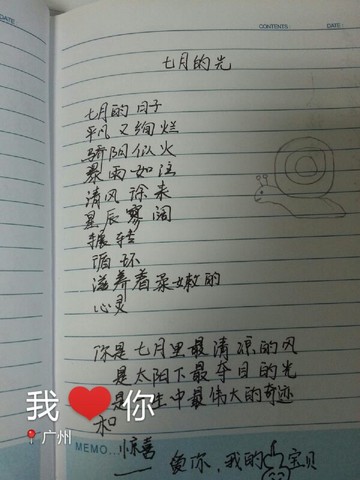 CONTENTS:
DATE:
DATE
七月的光
七月的日子
平凡又绚烂
骄阳似火
暴雨如注
清风徐来
星辰寥阔
辗转
循环
滋养着柔嫩的
心灵
你是七月里最清凉的风
是太阳下最夺目的光
是 生中最伟大的奇迹
和
惊喜
我❤你
广州
MEMO...
——负你,我的 宝贝